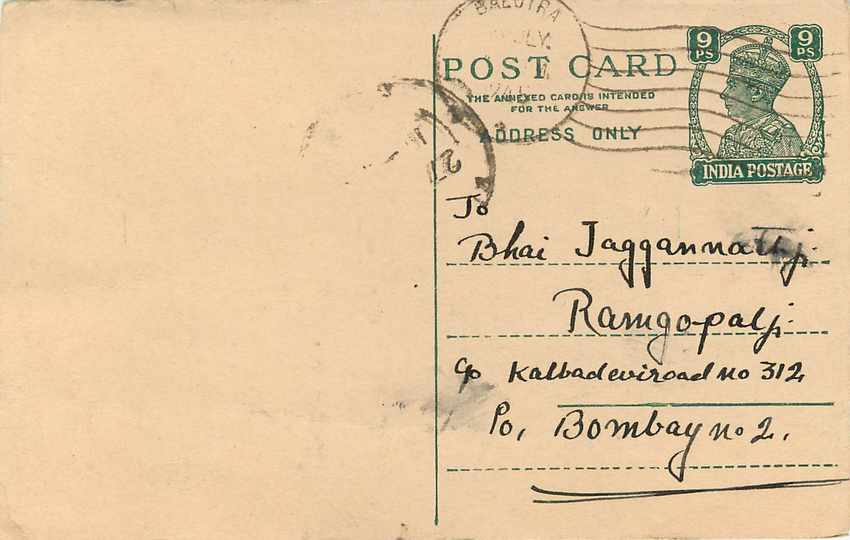 BALOTRA
JLY.
POST CARD
THE ANNEXED CARD IS INTENDED
FOR THE ANSWER
ADDRESS ONLY
9 9
PS PS
INDIA POSTAGE
27
To
Bhai Jaggannathji
Ramgopalji
c/o Kalbadeviroad no 312
Po, Bombay no 2.